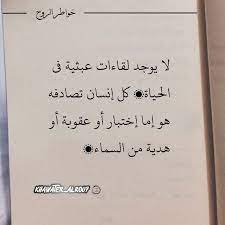 خواطر الروح
لا يوجد لقاءات عبثية فى
الحياة◉ كل إنسان تصادفه
هو إما إختبار أو عقوبة أو
هدية من السماء◉
KHAWATER_ALROUT